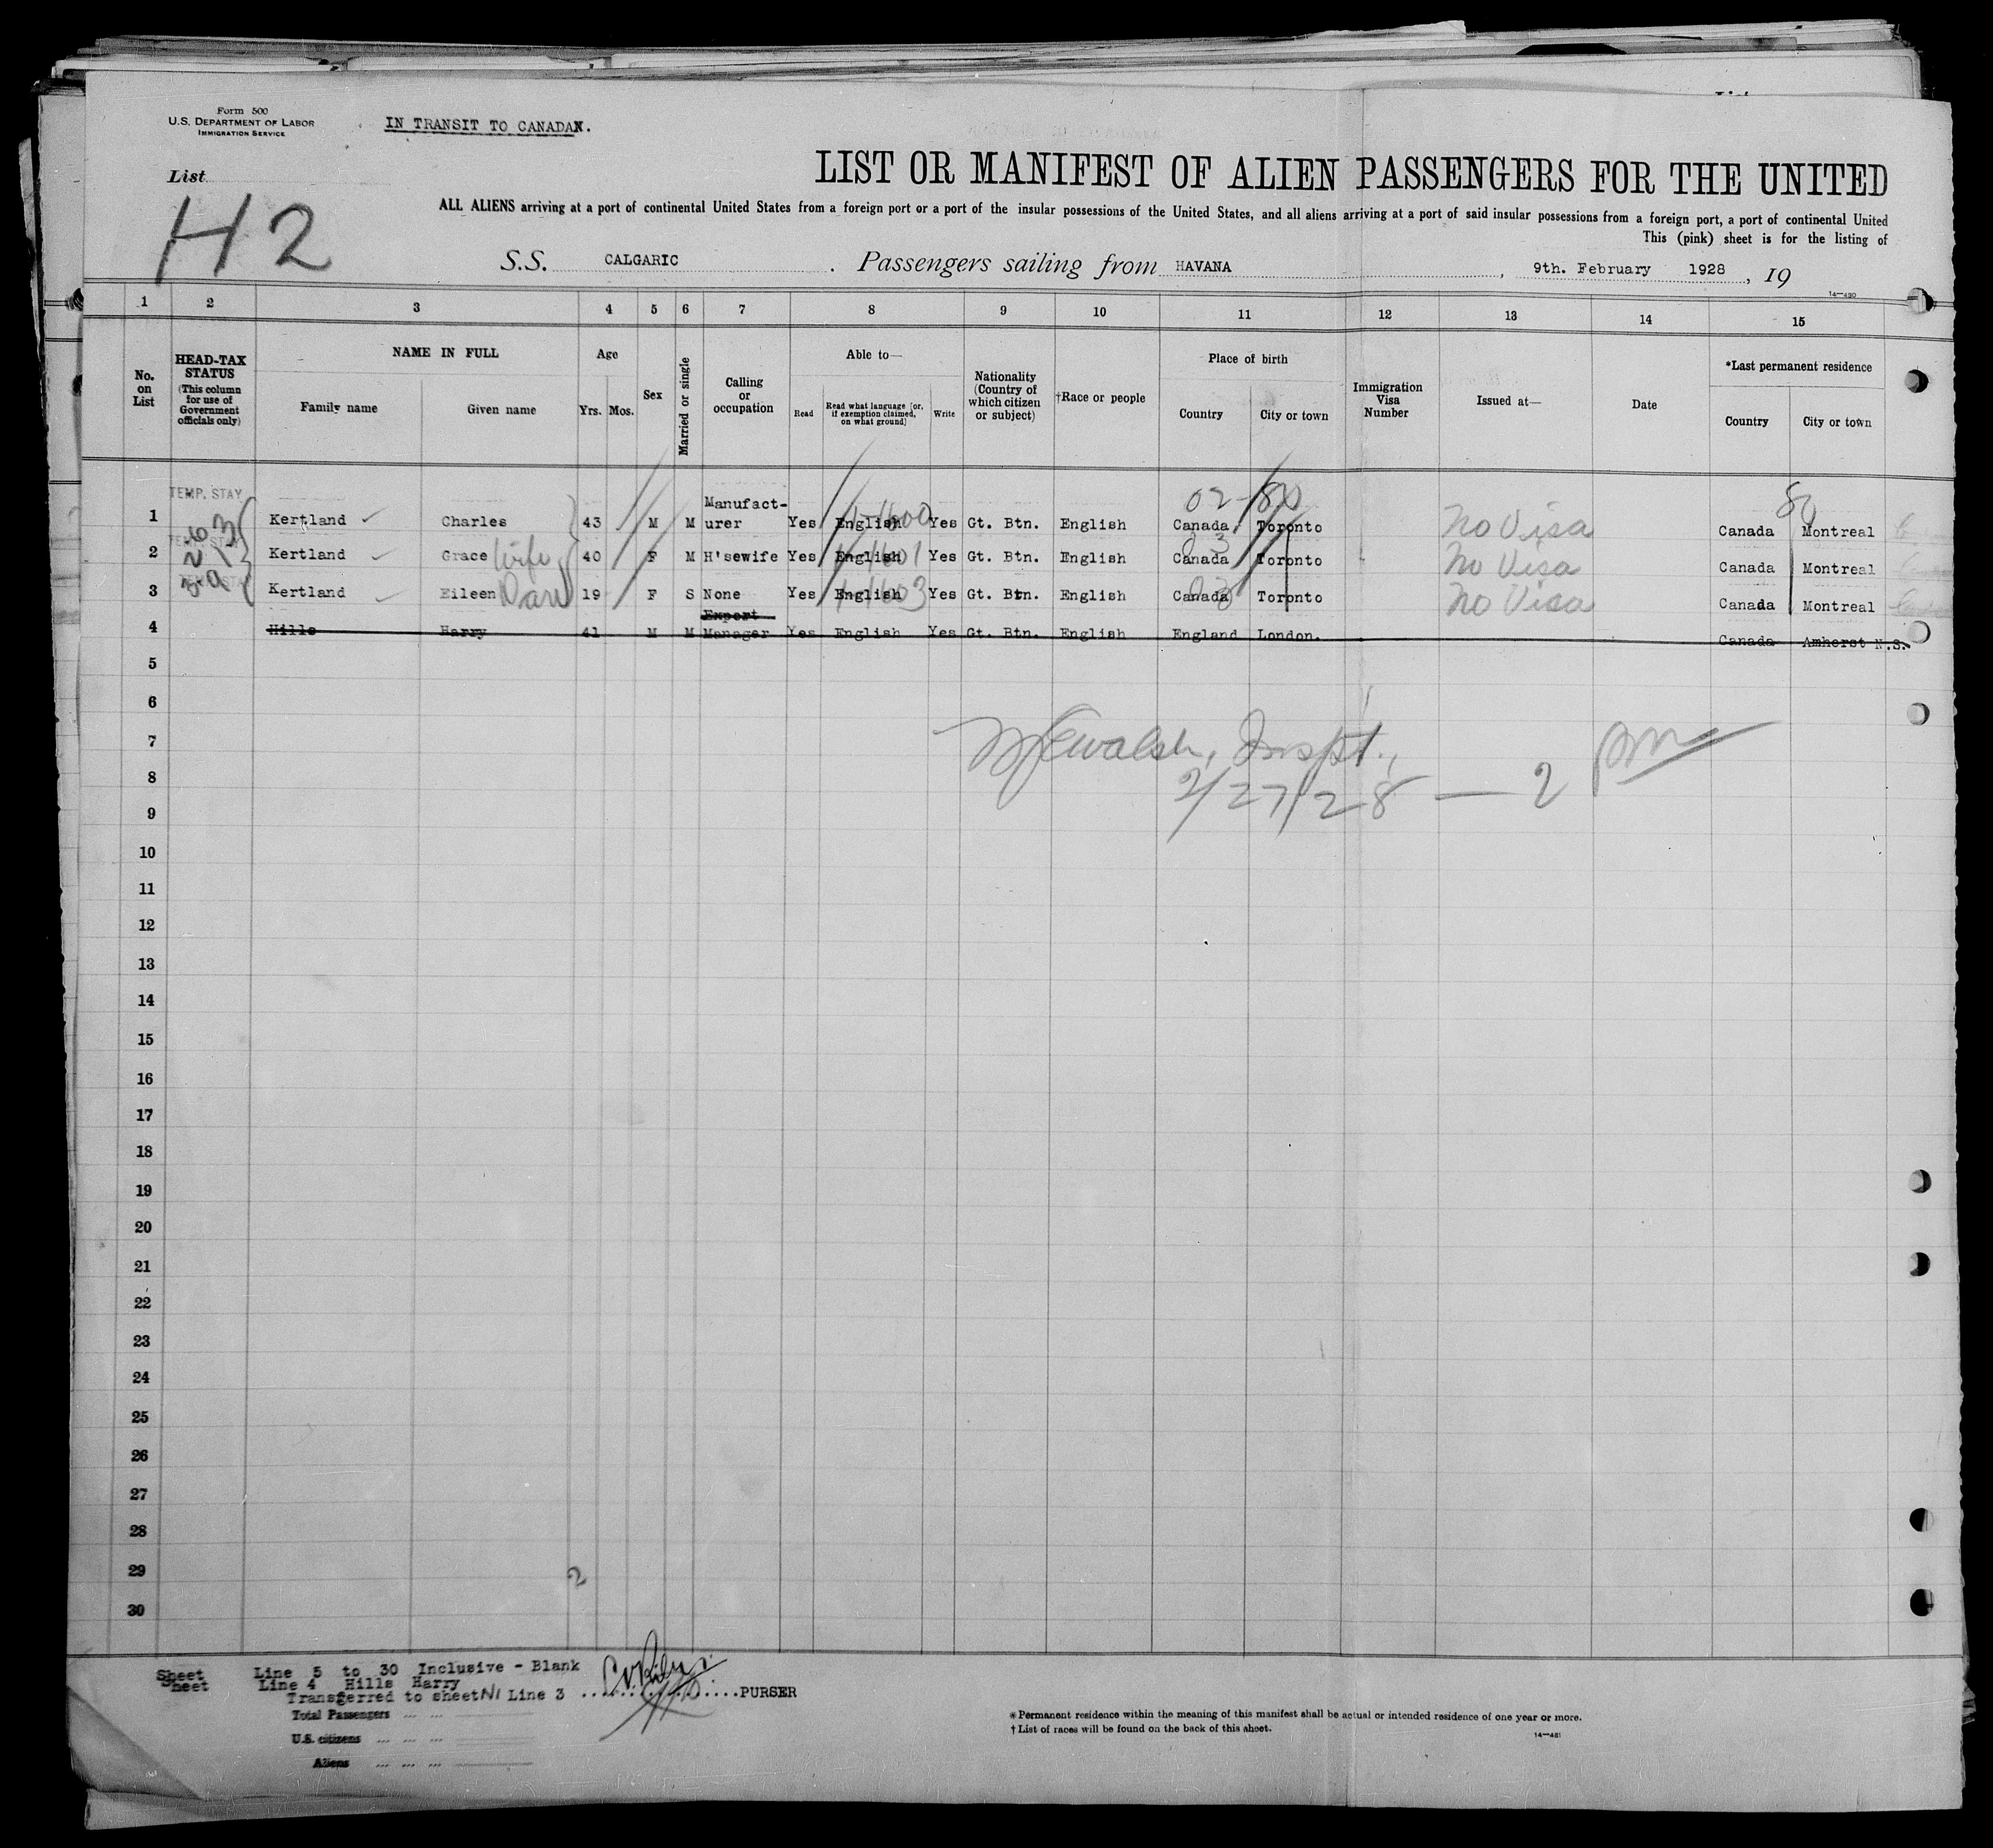 Form 500
U.S. DEPARTMENT OF LABOR
IMMIGRATION SERVICE
IN TRANSIT TO CANADAN.
List
H2
LIST OR MANIFEST OF ALIEN PASSENGERS FOR THE UNITED
ALL ALIENS arriving at a port of continental United States from a foreign port or a port of the insular possessions of the United States, and all aliens arriving at a port of said insular possessions from a foreign port, a port of continental United
This (pink) sheet is for the listing of
S.S. CALGARIC. Passengers sailing from HAVANA, 9th. February 1928, 19
14—430
1 2 3 4 5 6 7 8 9 10 11 12 13 14 15
No. on List
HEAD-TAX STATUS (This column for use of Government officials only)
NAME IN FULL
Family name Given name
Age
Yrs. Mos.
Sex
Married or single
Calling or occupation
Able to—
Read Read what language [or, if exemption claimed, on what ground] Write
Nationality (Country of which citizen or subject)
†Race or people
Place of birth
Country City or town
Immigration Visa Number
Issued at—
Date
*Last permanent residence
Country City or town
TEMP. STAY
02-80 80
1 Kertland Charles 43 M M Manufact-urer Yes English Yes Gt. Btn. English Canada, Toronto No Visa Canada Montreal
2 Kertland Grace Wife 40 F M H'sewife Yes English Yes Gt. Btn. English Canada Toronto No Visa Canada Montreal
3 Kertland Eileen Dau 19 F S None Yes English Yes Gt. Btn. English Canada Toronto No Visa Canada Montreal
4 Hills Harry 41 M M Export Manager Yes English Yes Gt. Btn. English England London. Canada Amherst N.S.
5
6
7
Walsh, Inspt.,
8
2/27/28 — 2 pm
9
10
11
12
13
14
15
16
17
18
19
20
21
22
23
24
25
26
27
28
29
2
30
Sheet Line 5 to 30 Inclusive - Blank
Sheet Line 4 Hills Harry
Transferred to sheet N1 Line 3 ........PURSER
Total Passengers
U.S. citizens
Aliens
*Permanent residence within the meaning of this manifest shall be actual or intended residence of one year or more.
†List of races will be found on the back of this sheet.
14—431